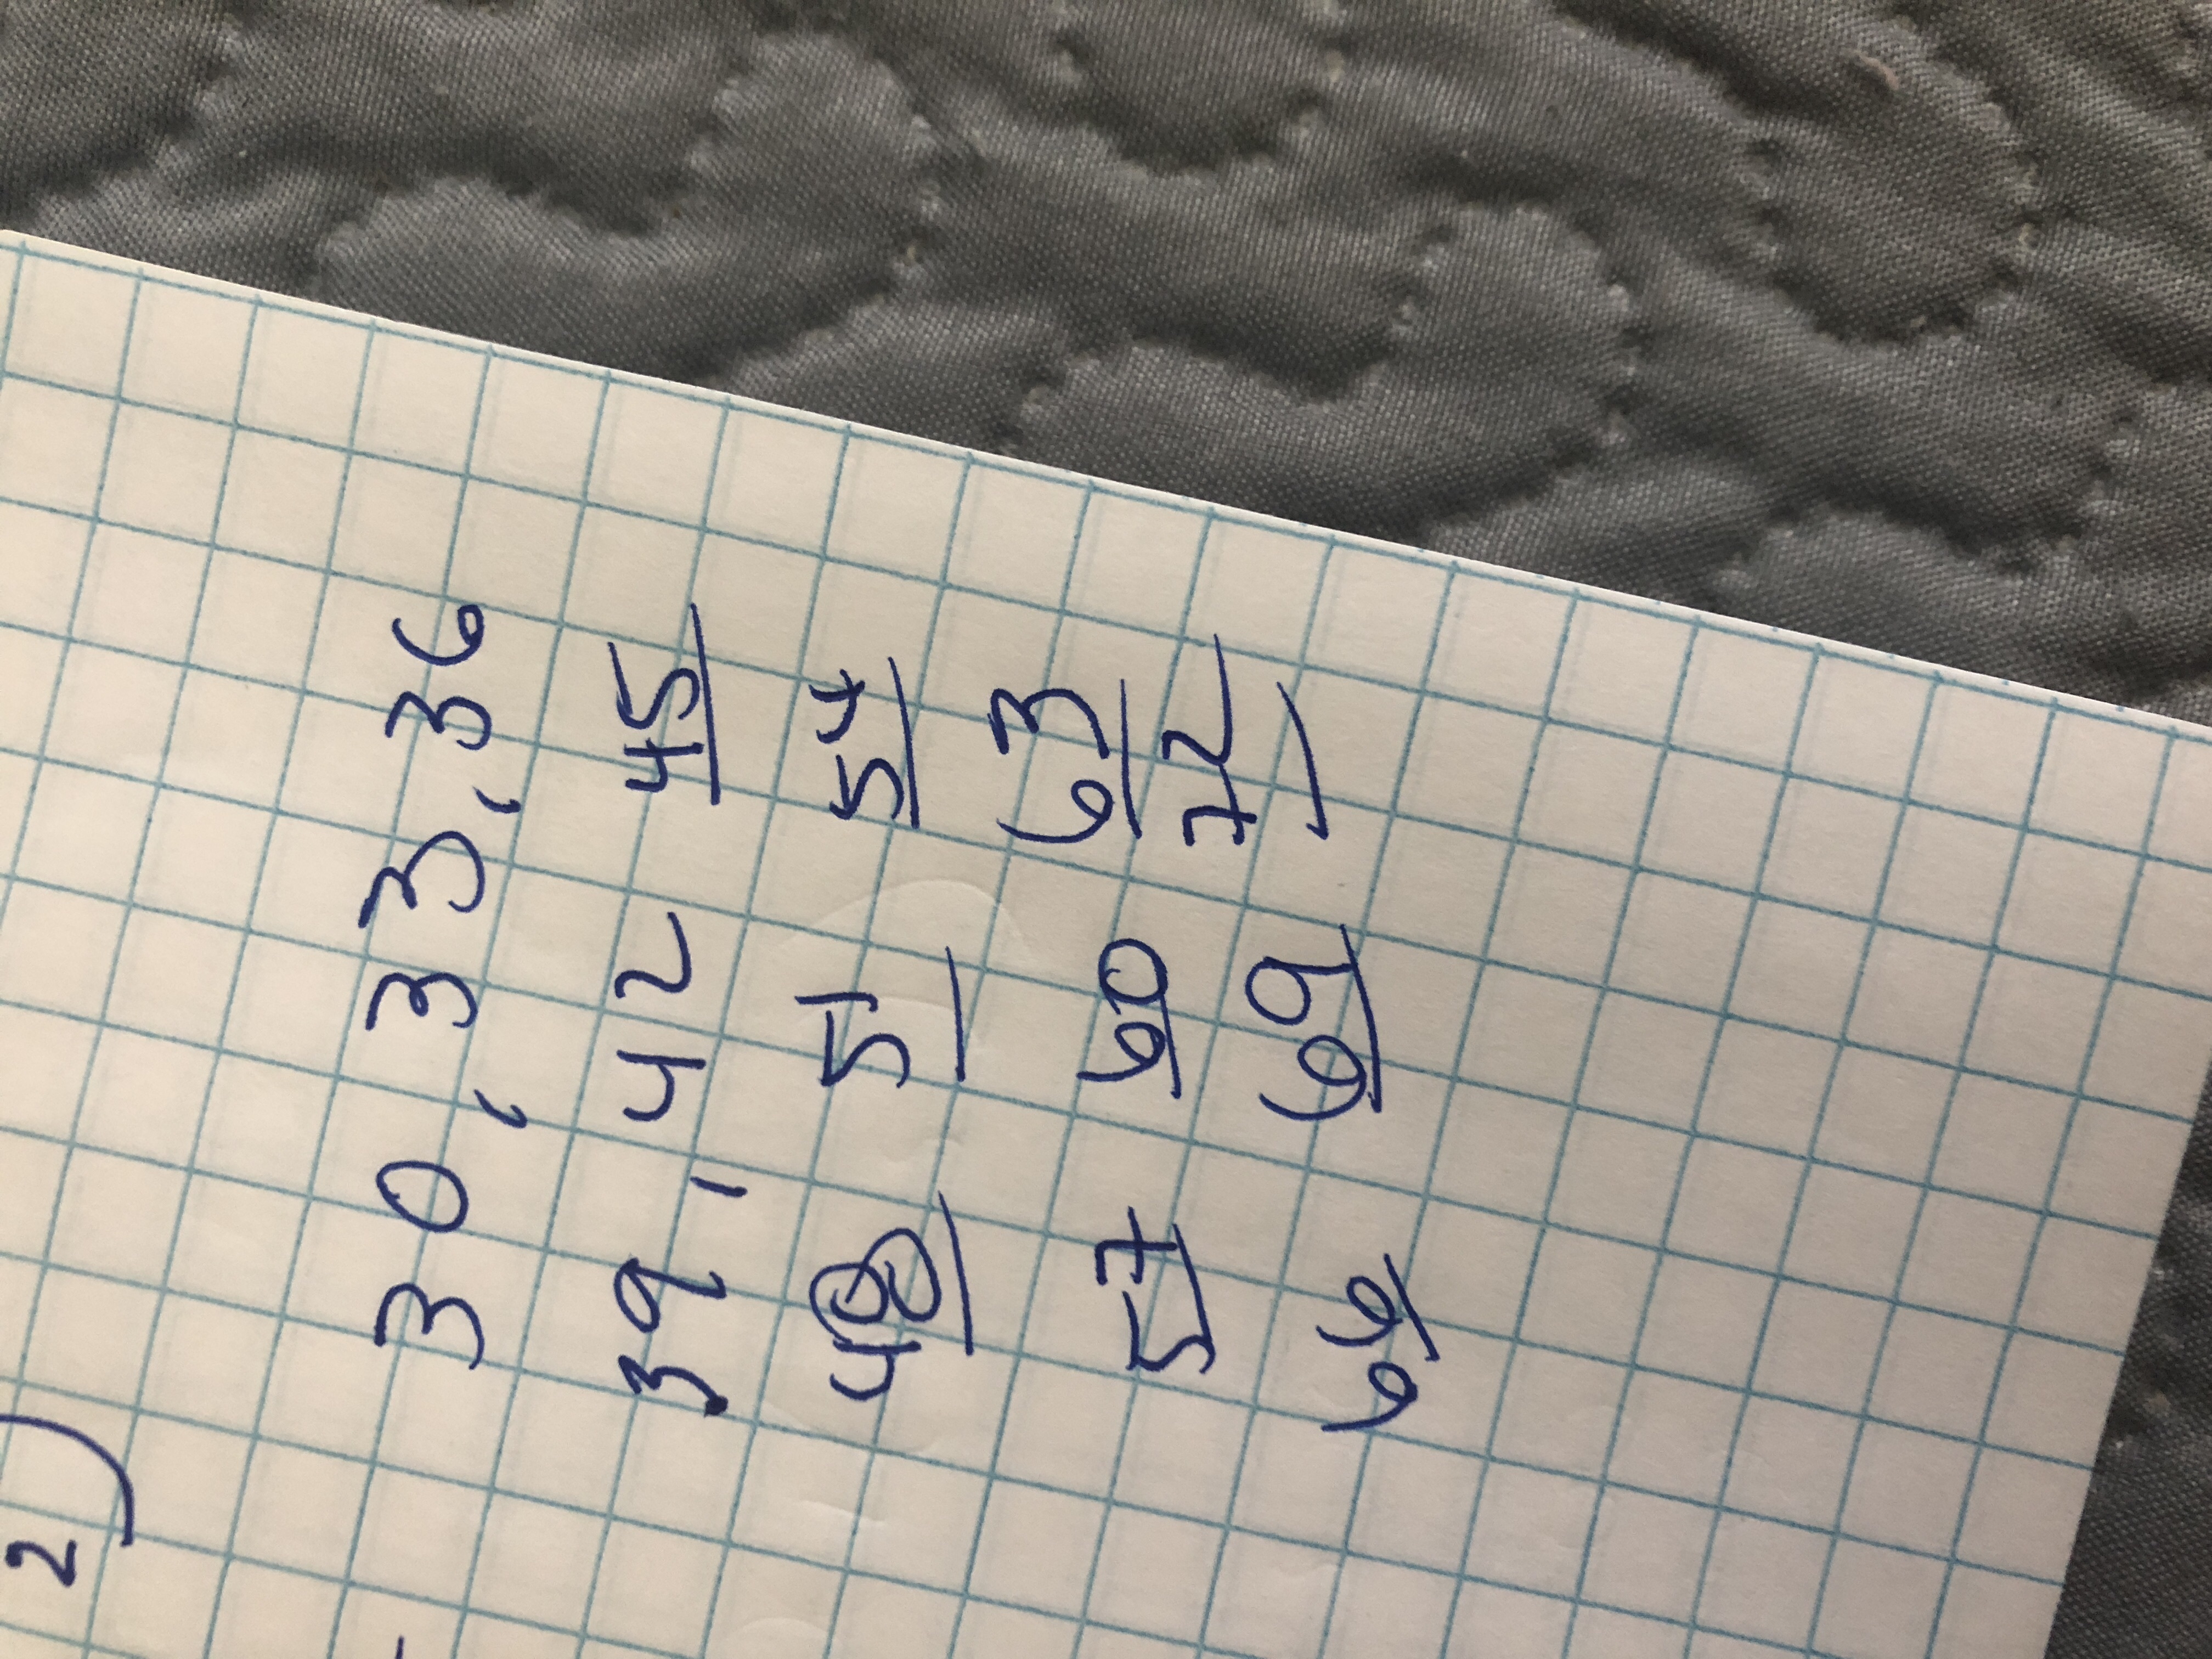 2)
30, 33, 36
39, 42 45
48 51 54
57 60 63
66 69 72